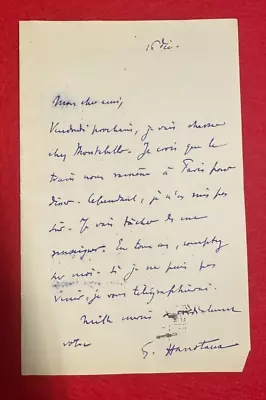 16 Dec.
Mon cher ami,
Vendredi prochain, je vais chasser
chez Montebello. Je crois que le
train nous ramène à Paris pour
dîner. Cependant, je n'en suis pas
sûr. Je vais tâcher de me
renseigner. En tous cas, comptez
sur moi. Si je ne puis pas
venir, je vous télégraphierai.
Mille mercis cordialement
votre
G. Hanotaux